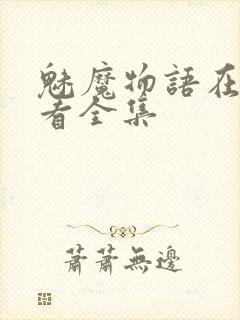 魅魔物語在
者全集
蕭蕭無邊